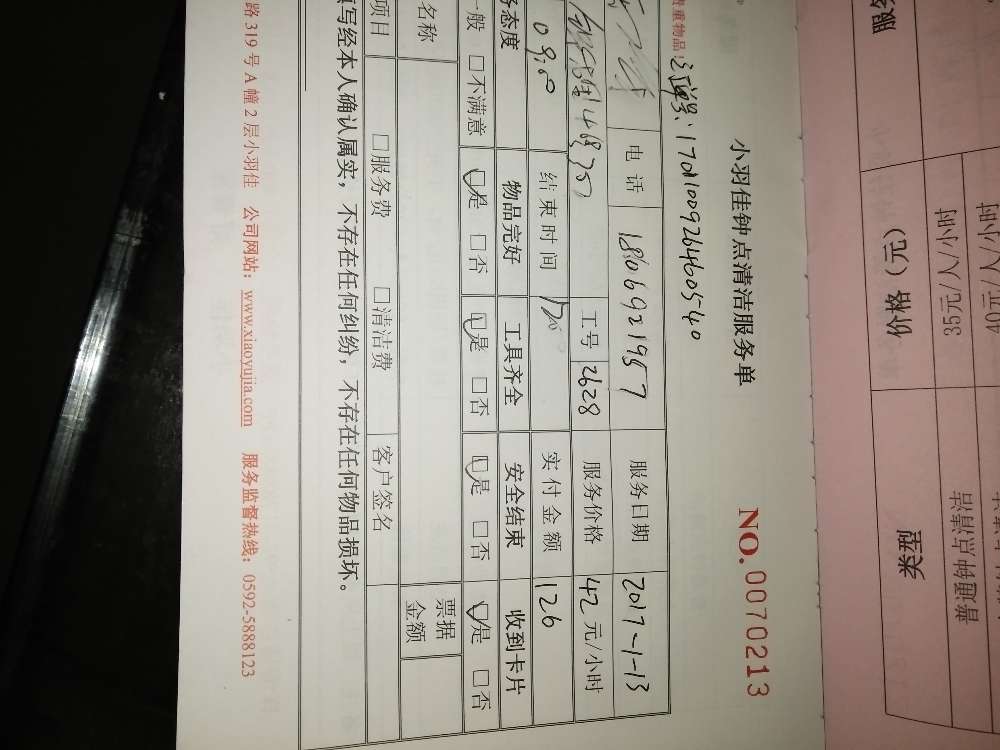 小羽佳钟点清洁服务单
NO.0070213
贵重物品
订单号:17011009264605540
电 话 18069921957 服务日期 2017-1-13
工号 2628 服务价格 42 元/小时
09:00 结束时间 实付金额 126
务态度 物品完好 工具齐全 安全结束 收到卡片
一般 □不满意 □是 □否 □是 □否 □是 □否 □是 □否
名称 票据金额
项目 □服务费 □清洁费 客户签名
填写经本人确认属实，不存在任何纠纷，不存在任何物品损坏。
路 319 号 A 幢 2 层小羽佳 公司网站：www.xiaoyujia.com 服务监督热线：0592-5888123
服务
类型 价格（元）
普通钟点清洁 35元/人/小时
40元/人/小时